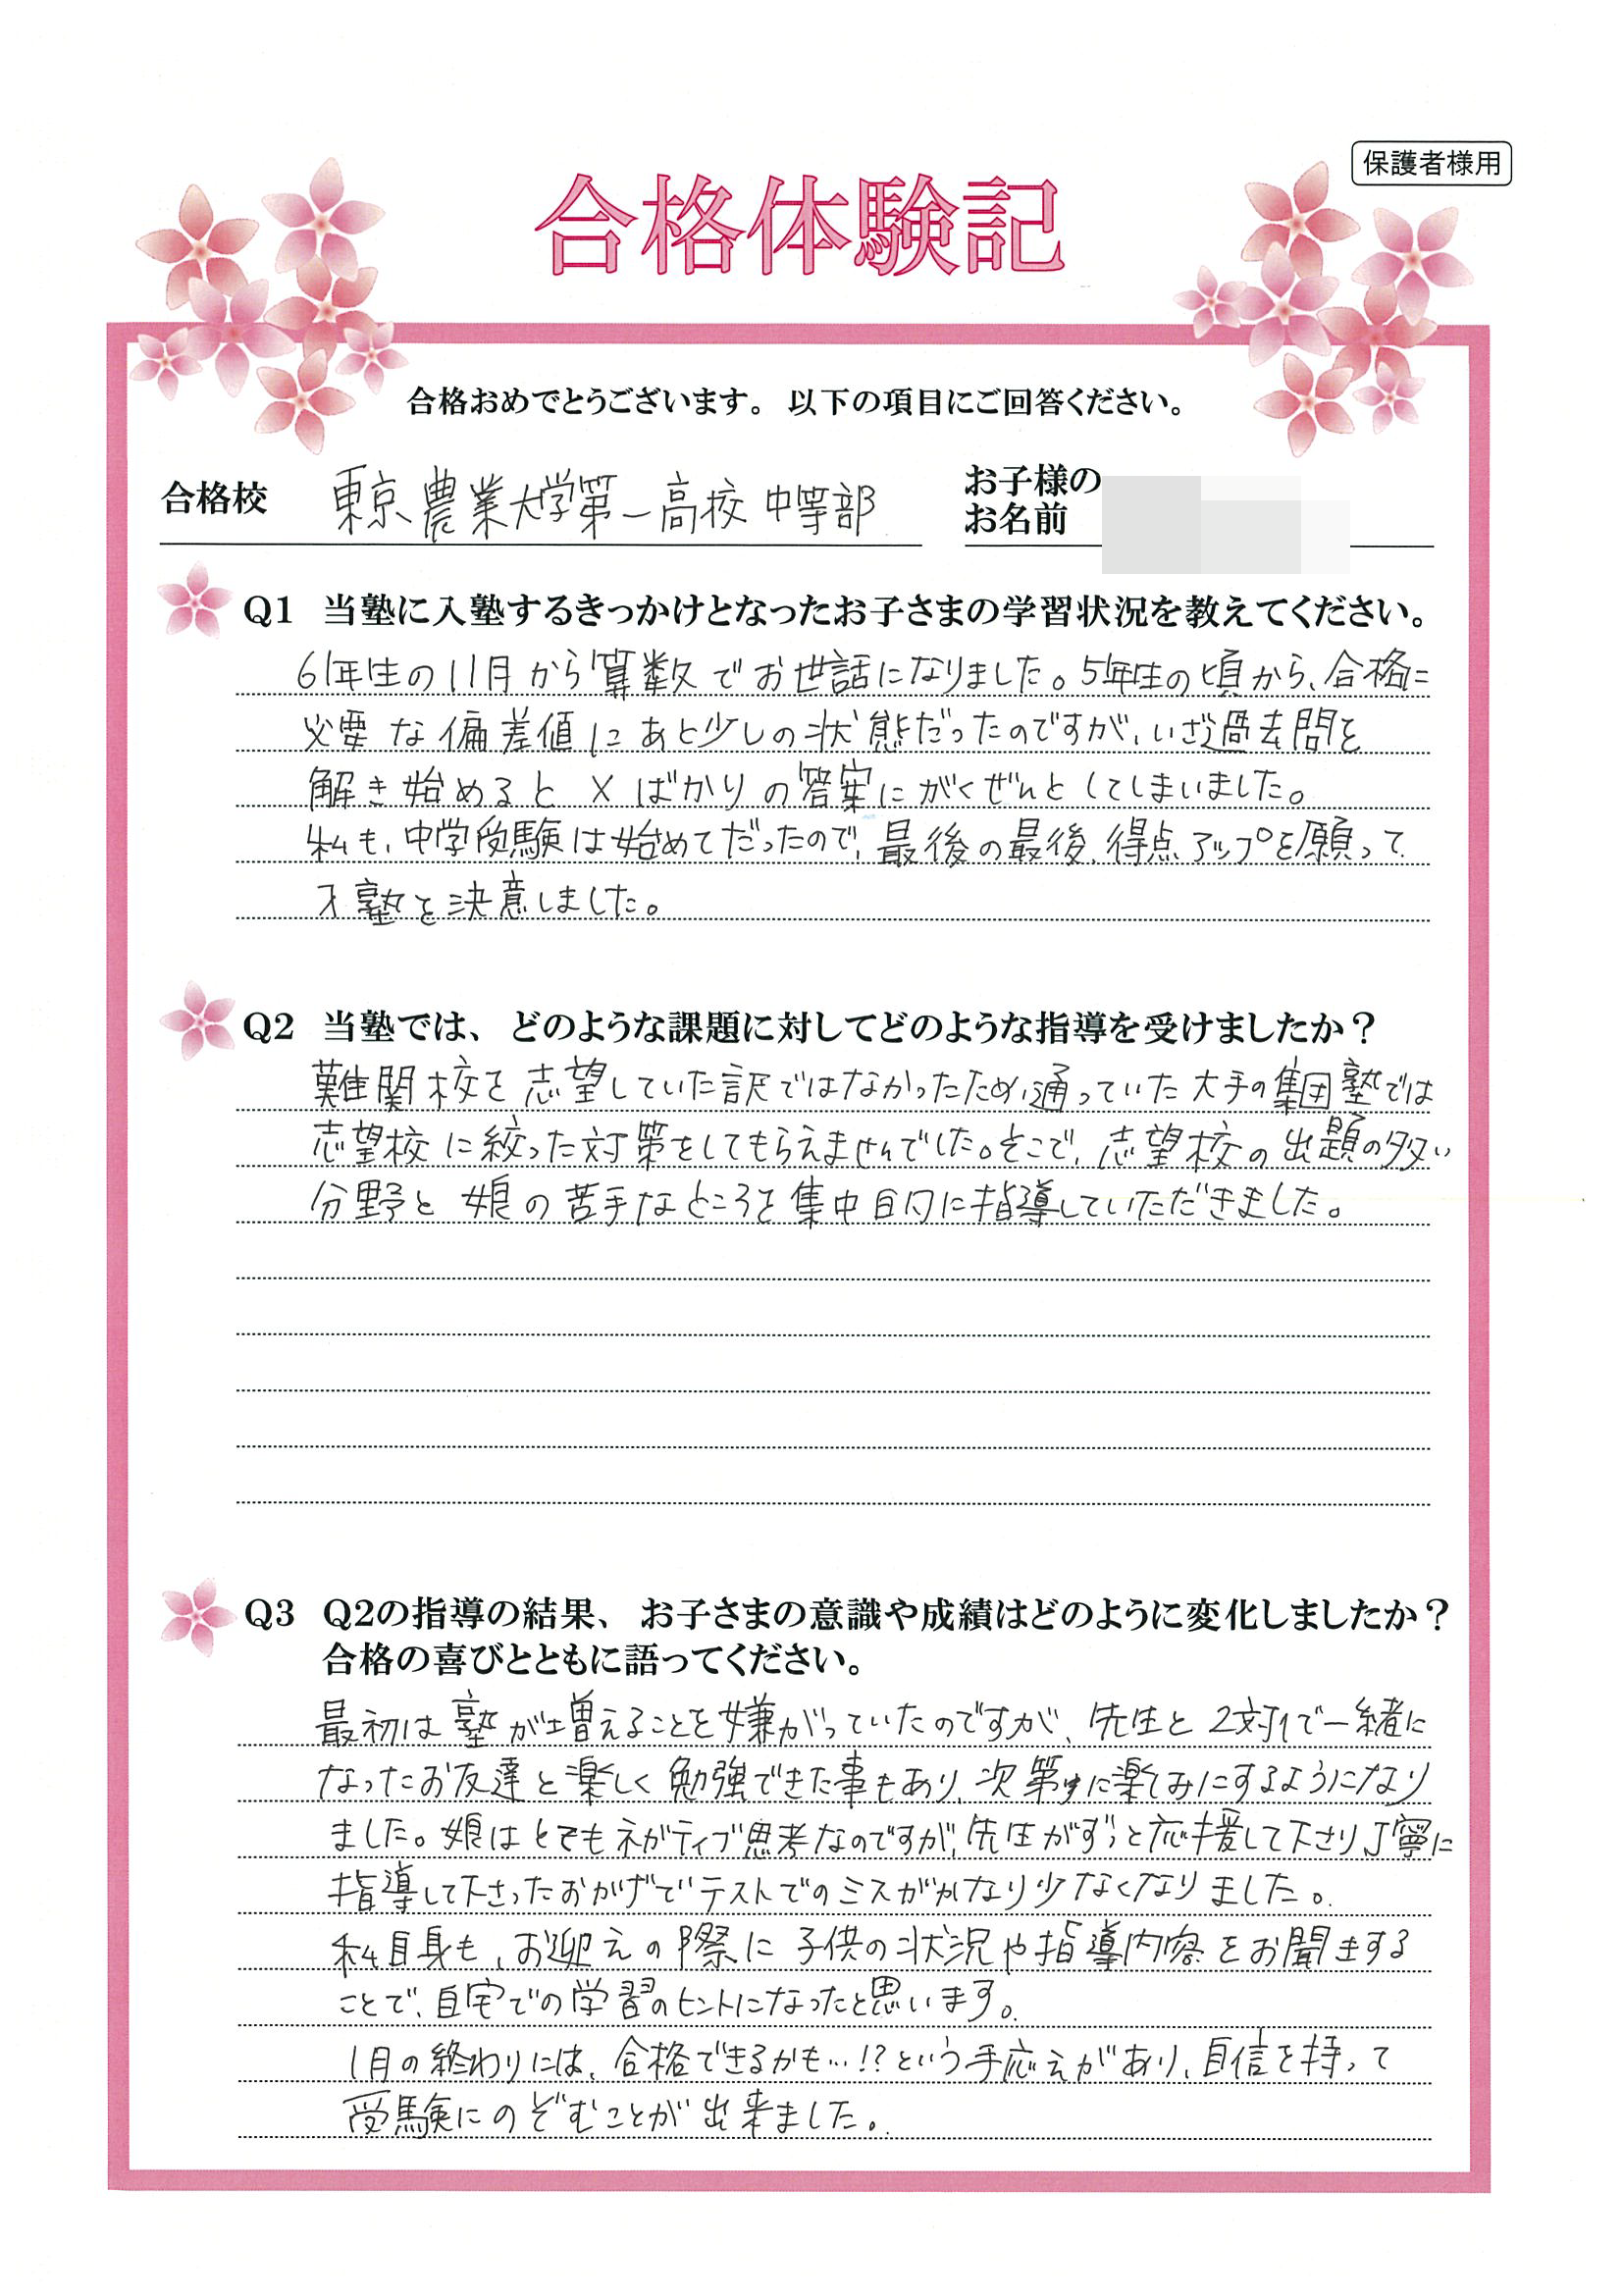 保護者様用
合格体験記
合格おめでとうございます。 以下の項目にご回答ください。
合格校 東京農業大学第一高校 中等部
お子様の
お名前
Q1 当塾に入塾するきっかけとなったお子さまの学習状況を教えてください。
6年生の11月から算数でお世話になりました。5年生の頃から、合格に
必要な偏差値にあと少しの状態だったのですが、いざ過去問を
解き始めると×ばかりの答案にがくぜんとしてしまいました。
私も、中学受験は始めてだったので、最後の最後、得点アップを願って
入塾を決意しました。
Q2 当塾では、どのような課題に対してどのような指導を受けましたか？
難関校を志望していた訳ではなかったため、通っていた大手の集団塾では
志望校に絞った対策をしてもらえませんでした。そこで、志望校の出題の多い
分野と娘の苦手なところを集中的に指導していただきました。
Q3 Q2の指導の結果、お子さまの意識や成績はどのように変化しましたか？
合格の喜びとともに語ってください。
最初は塾が増えることを嫌がっていたのですが、先生と2対1で一緒に
なったお友達と楽しく勉強できた事もあり、次第に楽しみにするようになり
ました。娘はとてもネガティブ思考なのですが、先生がずっと応援して下さり丁寧に
指導して下さったおかげでテストでのミスがかなり少なくなりました。
私自身も、お迎えの際に子供の状況や指導内容をお聞きする
ことで、自宅での学習のヒントになったと思います。
1月の終わりには、合格できるかも…!?という手応えがあり、自信を持って
受験にのぞむことが出来ました。